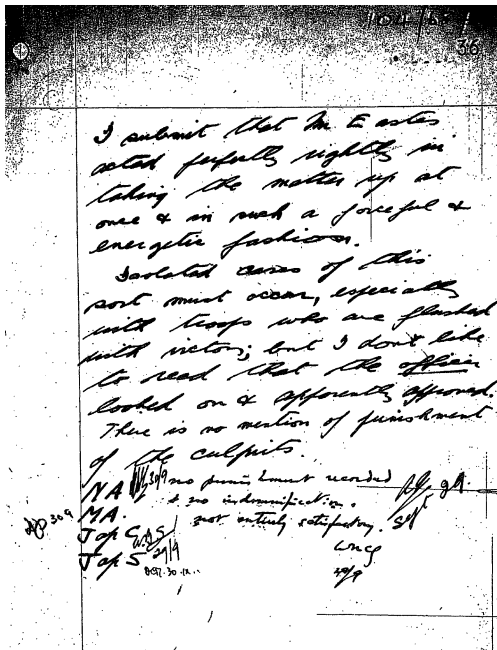 36
I submit that Mr Eastes
acted perfectly rightly in
taking the matter up at
once & in such a forceful &
energetic fashion.
Isolated cases of this
sort must occur, especially
with troops who are flushed
with victory; but I don't like
to read that the officer
looked on & apparently approved.
There is no mention of punishment
of the culprits.
NA 30/9 no punishment recorded
& no indemnification.
MA.
not entirely satisfactory.
30.9
Jap
Jap S 29/9
29.
Sept
29/9